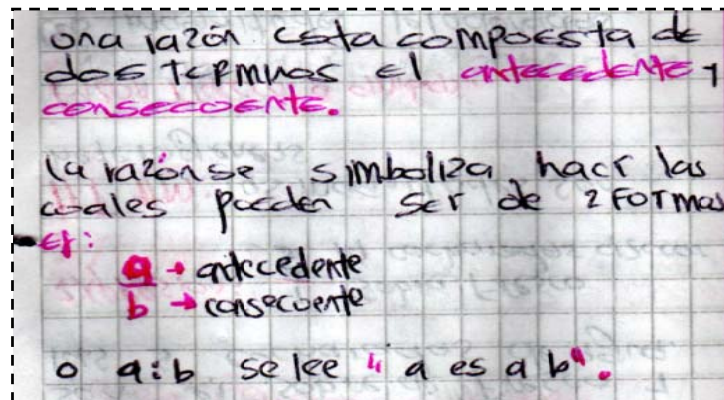 una razón esta compuesta de
dos terminos el antecedente y
consecuente.
la razón se simboliza hacr las
cuales pueden ser de 2 Formas
ej:
a → antecedente
b → consecuente
o a:b se lee "a es a b".